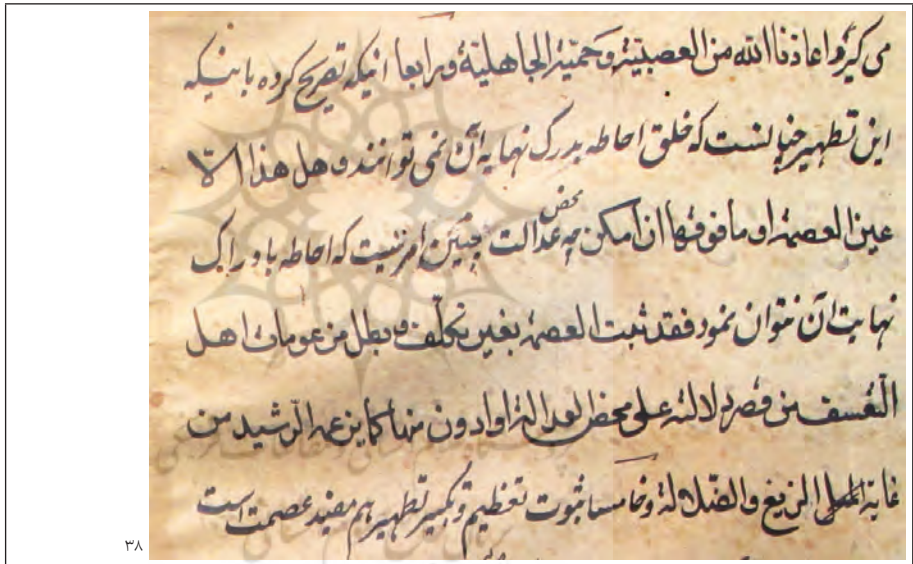 می گیرد اعاذنا الله من العصبیّة وحمیّة الجاهلیّة ورابعا اینکه تصریح کرده باینکه
این تطهیر چنانست که خلق احاطه بدرک نهایه آن نمی توانند و هل هذا الّا
عین العصمة او مافوقها ان امکن چه محض عدالت چنین امر نیست که احاطه بادراک
نهایت آن نتوان نمود فقد ثبت العصمة بغیر تکلّف و بطل مزعومات اهل
التّعسف من قصر دلالته علی محض العدالة او ادون منها کما یزعمه الرّشید من
غایة الزیغ والضّلالة وخامسا ثبوت تعظیم و تکثیر تطهیر هم مفید عصمت است
۳۸